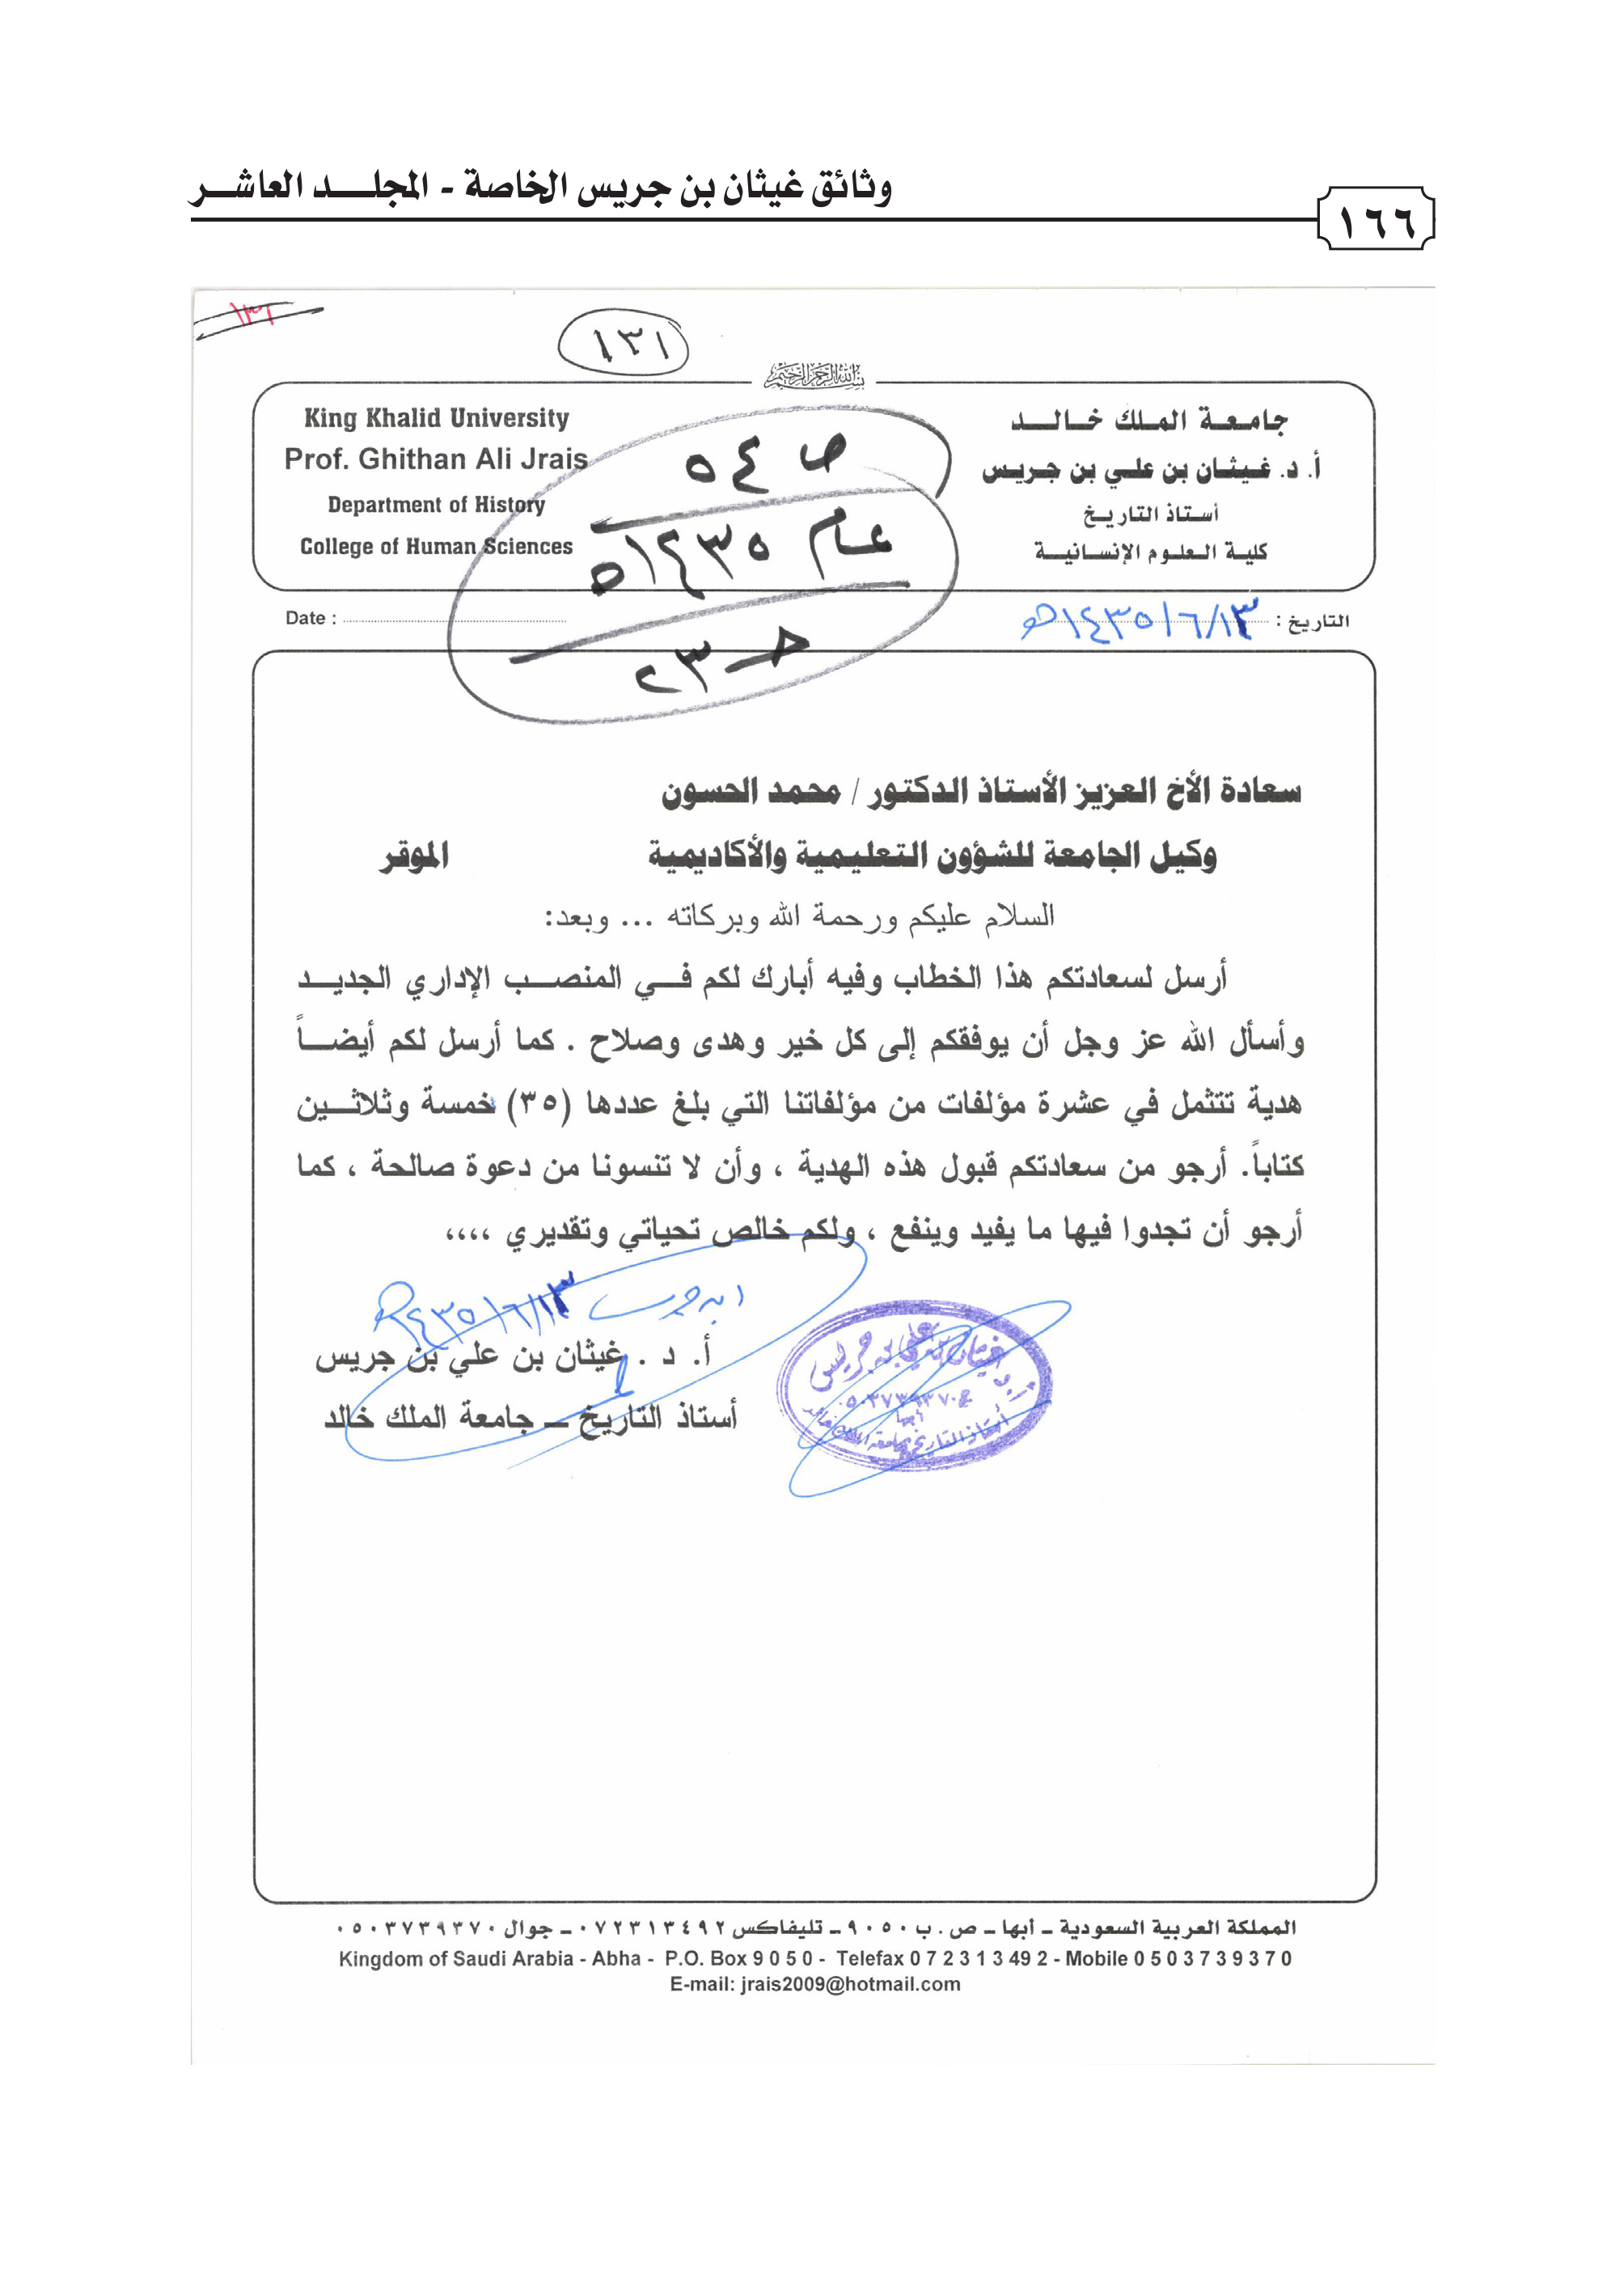 وثائق غيثان بن جريس الخاصة - المجلـــد العاشـــر
١٦٦
١٣١
١٣١
بسم الله الرحمن الرحيم
جامعة الملك خالد
أ. د. غيثان بن علي بن جريس
أستاذ التاريخ
كلية العلوم الإنسانية
King Khalid University
Prof. Ghithan Ali Jrais
Department of History
College of Human Sciences
ص ٥٤
عام ١٤٣٥هـ
حـ ٢٣
التاريخ : ١٤٣٥/٦/١٣هـ
Date :
سعادة الأخ العزيز الأستاذ الدكتور / محمد الحسون
وكيل الجامعة للشؤون التعليمية والأكاديمية الموقر
السلام عليكم ورحمة الله وبركاته ... وبعد:
أرسل لسعادتكم هذا الخطاب وفيه أبارك لكم فـي المنصـب الإداري الجديـد
وأسأل الله عز وجل أن يوفقكم إلى كل خير وهدى وصلاح . كما أرسل لكم أيضـاً
هدية تتثمل في عشرة مؤلفات من مؤلفاتنا التي بلغ عددها (٣٥) خمسة وثلاثـين
كتاباً. أرجو من سعادتكم قبول هذه الهدية ، وأن لا تنسونا من دعوة صالحة ، كما
أرجو أن تجدوا فيها ما يفيد وينفع ، ولكم خالص تحياتي وتقديري ،،،،
ابن جريس ١٤٣٥/٦/١٣هـ
أ. د . غيثان بن علي بن جريس
أستاذ التاريخ – جامعة الملك خالد
أ. د غيثان بن علي بن جريس
ج ٠٥٠٣٧٣٩٣٧٠
أبها
أستاذ التاريخ بجامعة الملك خالد
المملكة العربية السعودية – أبها – ص . ب ٩٠٥٠ – تليفاكس ٠٧٢٣١٣٤٩٢ – جوال ٠٥٠٣٧٣٩٣٧٠
Kingdom of Saudi Arabia - Abha - P.O. Box 9 0 5 0 - Telefax 0 7 2 3 1 3 49 2 - Mobile 0 5 0 3 7 3 9 3 7 0
E-mail: jrais2009@hotmail.com